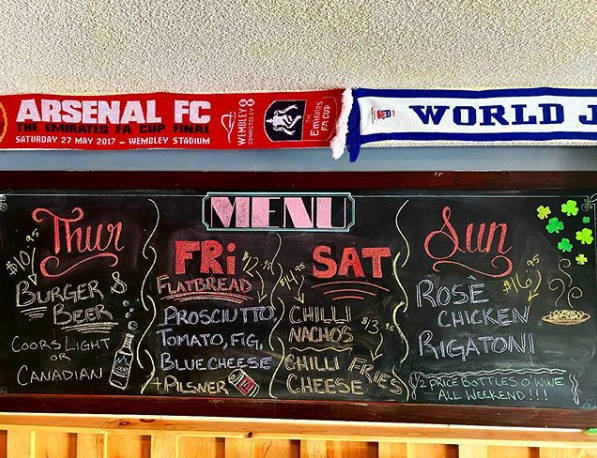 ARSENAL FC
THE EMIRATES FA CUP FINAL
SATURDAY 27 MAY 2017 – WEMBLEY STADIUM
WEMBLEY
The Emirates FA CUP
WORLD J
MENU
Thur
$10.95
BURGER &
BEER
COORS LIGHT
OR
CANADIAN
FRi
FLATBREAD
PROSCIUTTO,
TOMATO, FIG,
BLUECHEESE
+ PILSNER
SAT
CHILLI
NACHOS
$13.95
CHILLI FRIES
CHEESE
Sun
$16.95
ROSÈ
CHICKEN
RIGATONI
1/2 PRICE BOTTLES O' WINE
ALL WEEKEND!!!